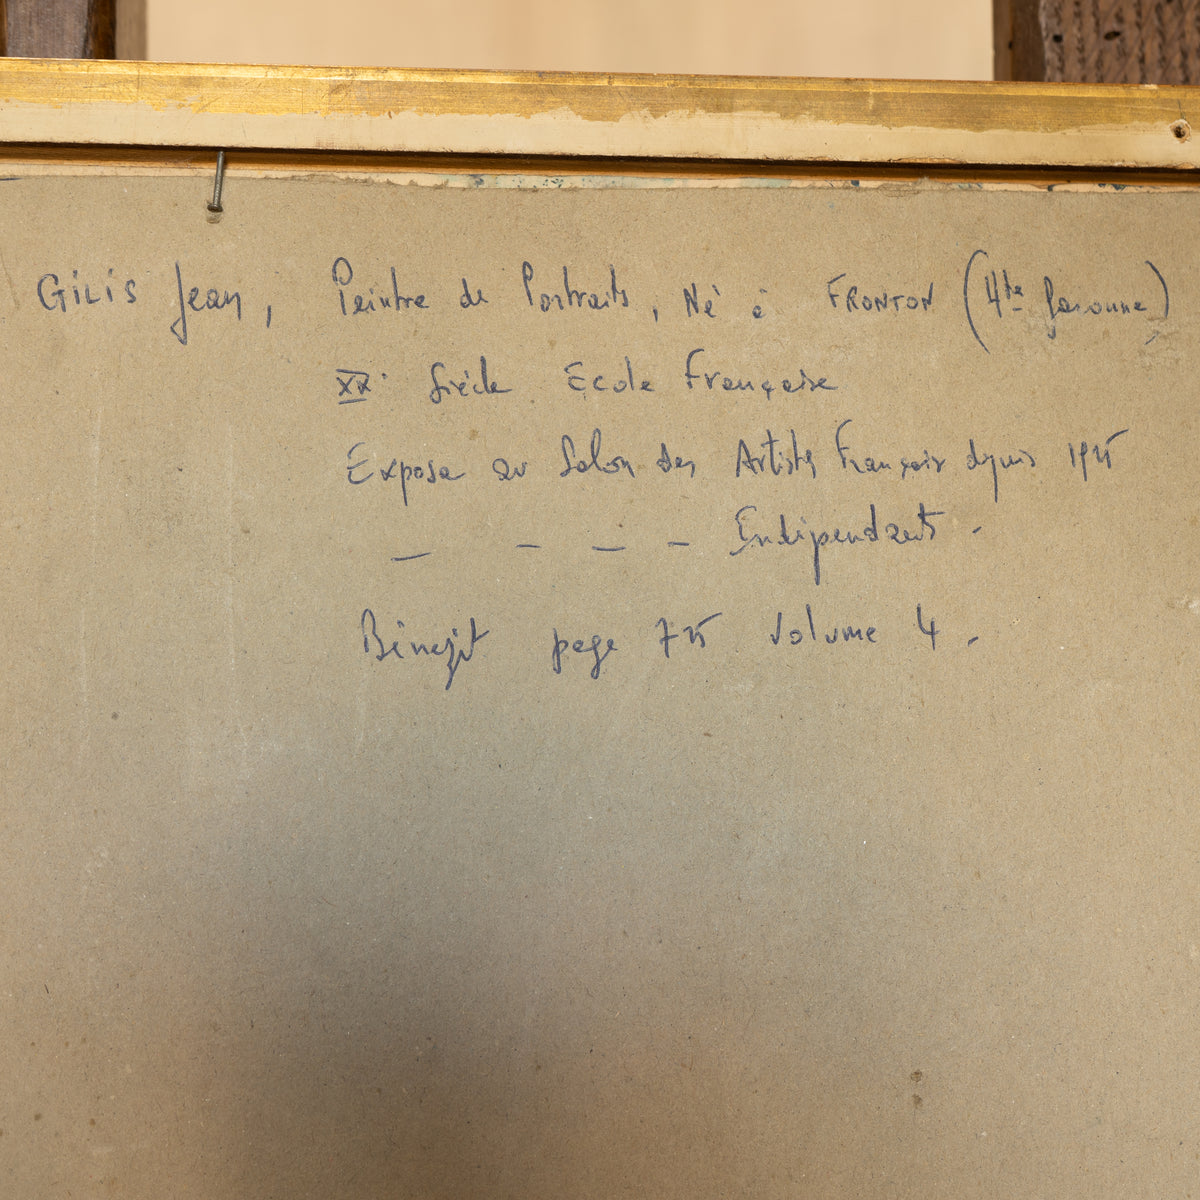 GILIS Jean, Peintre de Portraits, Né à FRONTON (Hte Garonne)
XX. Siècle Ecole Française
Expose au Salon des Artistes Français depuis 1925
— — — — Indépendants -
Bénézit page 725 Volume 4.